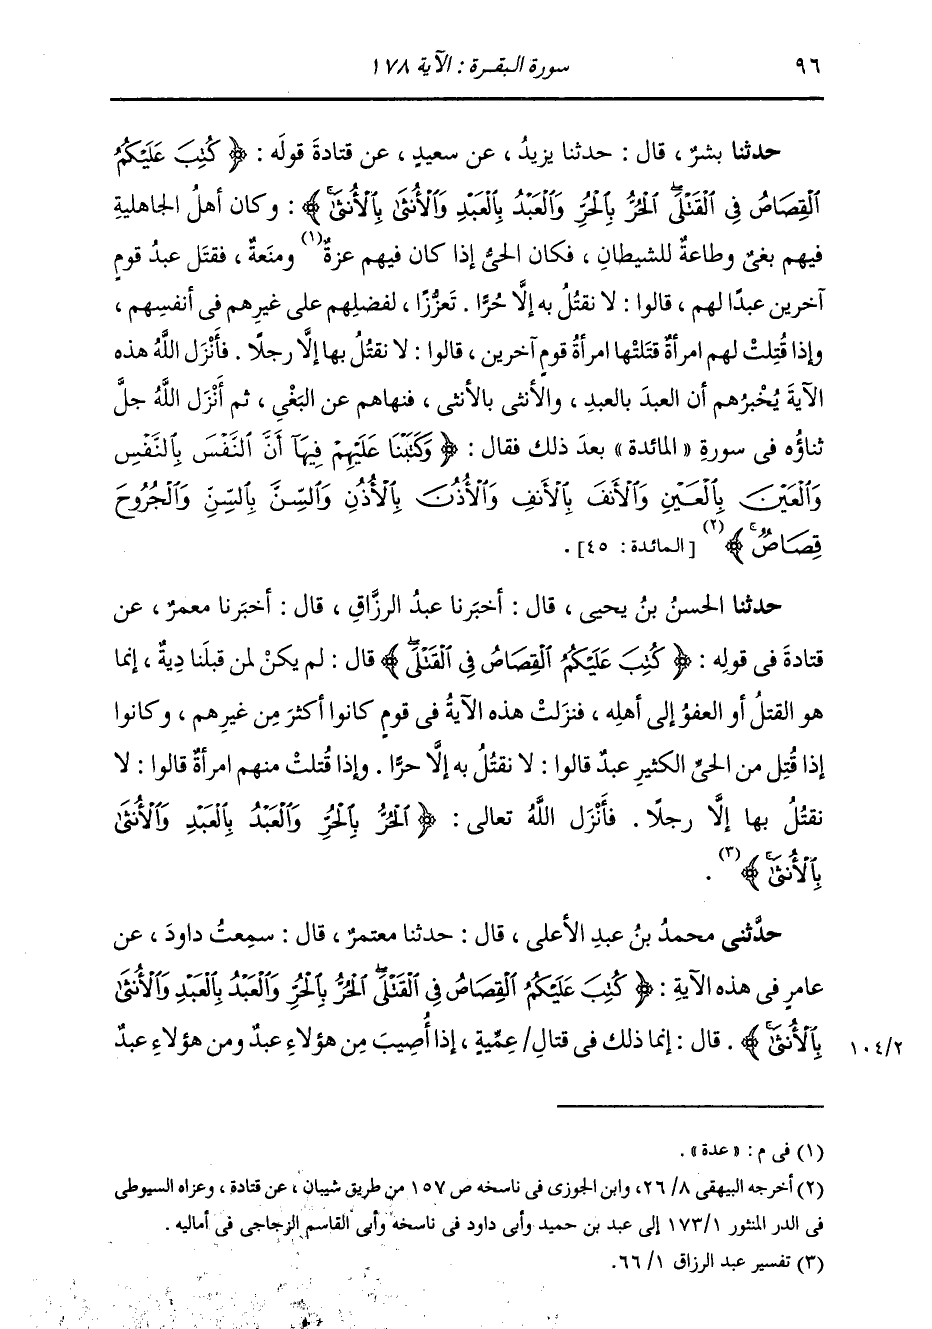 ٩٦
سورة البقرة : الآية ١٧٨
حدثنا بشرٌ ، قال : حدثنا يزيدُ ، عن سعيدٍ ، عن قتادةَ قولَه : ﴿ كُتِبَ عَلَيْكُمُ
ٱلْقِصَاصُ فِي ٱلْقَتْلَىۖ ٱلْحُرُّ بِٱلْحُرِّ وَٱلْعَبْدُ بِٱلْعَبْدِ وَٱلْأُنثَىٰ بِٱلْأُنثَىٰۚ ﴾ : وكان أهلُ الجاهليةِ
فيهم بغىٌ وطاعةٌ للشيطانِ ، فكان الحىُّ إذا كان فيهم عزةٌ(١) ومنَعةٌ ، فقتَل عبدُ قومٍ
آخرين عبدًا لهم ، قالوا : لا نقتُلُ به إلَّا حُرًّا . تَعزُّزًا ، لفضلِهم على غيرِهم فى أنفسِهم ،
وإذا قُتِلت لهم امرأةٌ قتَلتْها امرأةُ قومٍ آخرين ، قالوا : لا نقتُلُ بها إلَّا رجلًا . فأَنْزَل اللَّهُ هذه
الآيةَ يُخْبرُهم أن العبدَ بالعبدِ ، والأنثى بالأنثى ، فنهاهم عن البَغْىِ ، ثم أَنْزَل اللَّهُ جلَّ
ثناؤُه فى سورةِ « المائدة » بعدَ ذلك فقال : ﴿ وَكَتَبْنَا عَلَيْهِمْ فِيهَآ أَنَّ ٱلنَّفْسَ بِٱلنَّفْسِ
وَٱلْعَيْنَ بِٱلْعَيْنِ وَٱلْأَنفَ بِٱلْأَنفِ وَٱلْأُذُنَ بِٱلْأُذُنِ وَٱلسِّنَّ بِٱلسِّنِّ وَٱلْجُرُوحَ
قِصَاصٌۚ ﴾(٢) [المائدة : ٤٥] .
حدثنا الحسنُ بنُ يحيى ، قال : أخبَرنا عبدُ الرزَّاقِ ، قال : أخبَرنا معمرٌ ، عن
قتادةَ فى قولِه : ﴿ كُتِبَ عَلَيْكُمُ ٱلْقِصَاصُ فِي ٱلْقَتْلَىۖ ﴾ قال : لم يكنْ لمن قبلَنا دِيةٌ ، إنما
هو القتلُ أو العفوُ إلى أهلِه ، فنزَلتْ هذه الآيةُ فى قومٍ كانوا أكثرَ مِن غيرِهم ، وكانوا
إذا قُتِل من الحىِّ الكثيرِ عبدٌ قالوا : لا نقتُلُ به إلَّا حرًّا . وإذا قُتلتْ منهم امرأةٌ قالوا : لا
نقتُلُ بها إلَّا رجلًا . فأَنْزَل اللَّهُ تعالى : ﴿ ٱلْحُرُّ بِٱلْحُرِّ وَٱلْعَبْدُ بِٱلْعَبْدِ وَٱلْأُنثَىٰ
بِٱلْأُنثَىٰۚ ﴾(٣) .
حدَّثنى محمدُ بنُ عبدِ الأعلى ، قال : حدثنا معتمرٌ ، قال : سمِعتُ داودَ ، عن
عامرٍ فى هذه الآيةِ : ﴿ كُتِبَ عَلَيْكُمُ ٱلْقِصَاصُ فِي ٱلْقَتْلَىۖ ٱلْحُرُّ بِٱلْحُرِّ وَٱلْعَبْدُ بِٱلْعَبْدِ وَٱلْأُنثَىٰ
بِٱلْأُنثَىٰۚ ﴾ . قال : إنما ذلك فى قتالِ/ عِمِّيةٍ ، إذا أُصِيبَ مِن هؤلاءِ عبدٌ ومن هؤلاءِ عبدٌ
١٠٤/٢
(١) فى م : « عدة » .
(٢) أخرجه البيهقى ٨/ ٢٦، وابن الجوزى فى ناسخه ص ١٥٧ من طريق شيبان ، عن قتادة ، وعزاه السيوطى
فى الدر المنثور ١/ ١٧٣ إلى عبد بن حميد وأبى داود فى ناسخه وأبى القاسم الزجاجى فى أماليه .
(٣) تفسير عبد الرزاق ١/ ٦٦.